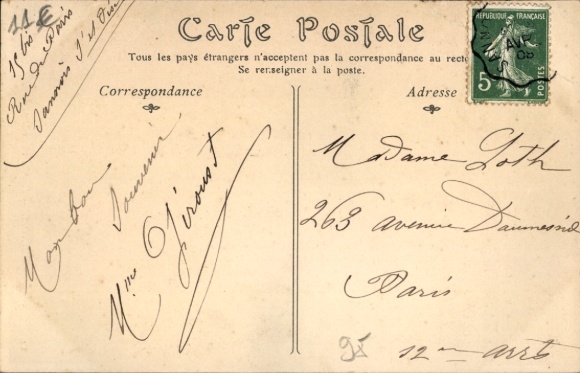 11 €
15 bis
Rue de Paris
Sannois S et Oise
Carte Postale
Tous les pays étrangers n'acceptent pas la correspondance au recto
Se renseigner à la poste.
Correspondance
Adresse
RÉPUBLIQUE FRANÇAISE
5
POSTES
AVR
08
Mon bon
Souvenir
Mme Géroust
Madame Loth
263 avenue Daumesnil
Paris
12 me arrt
95